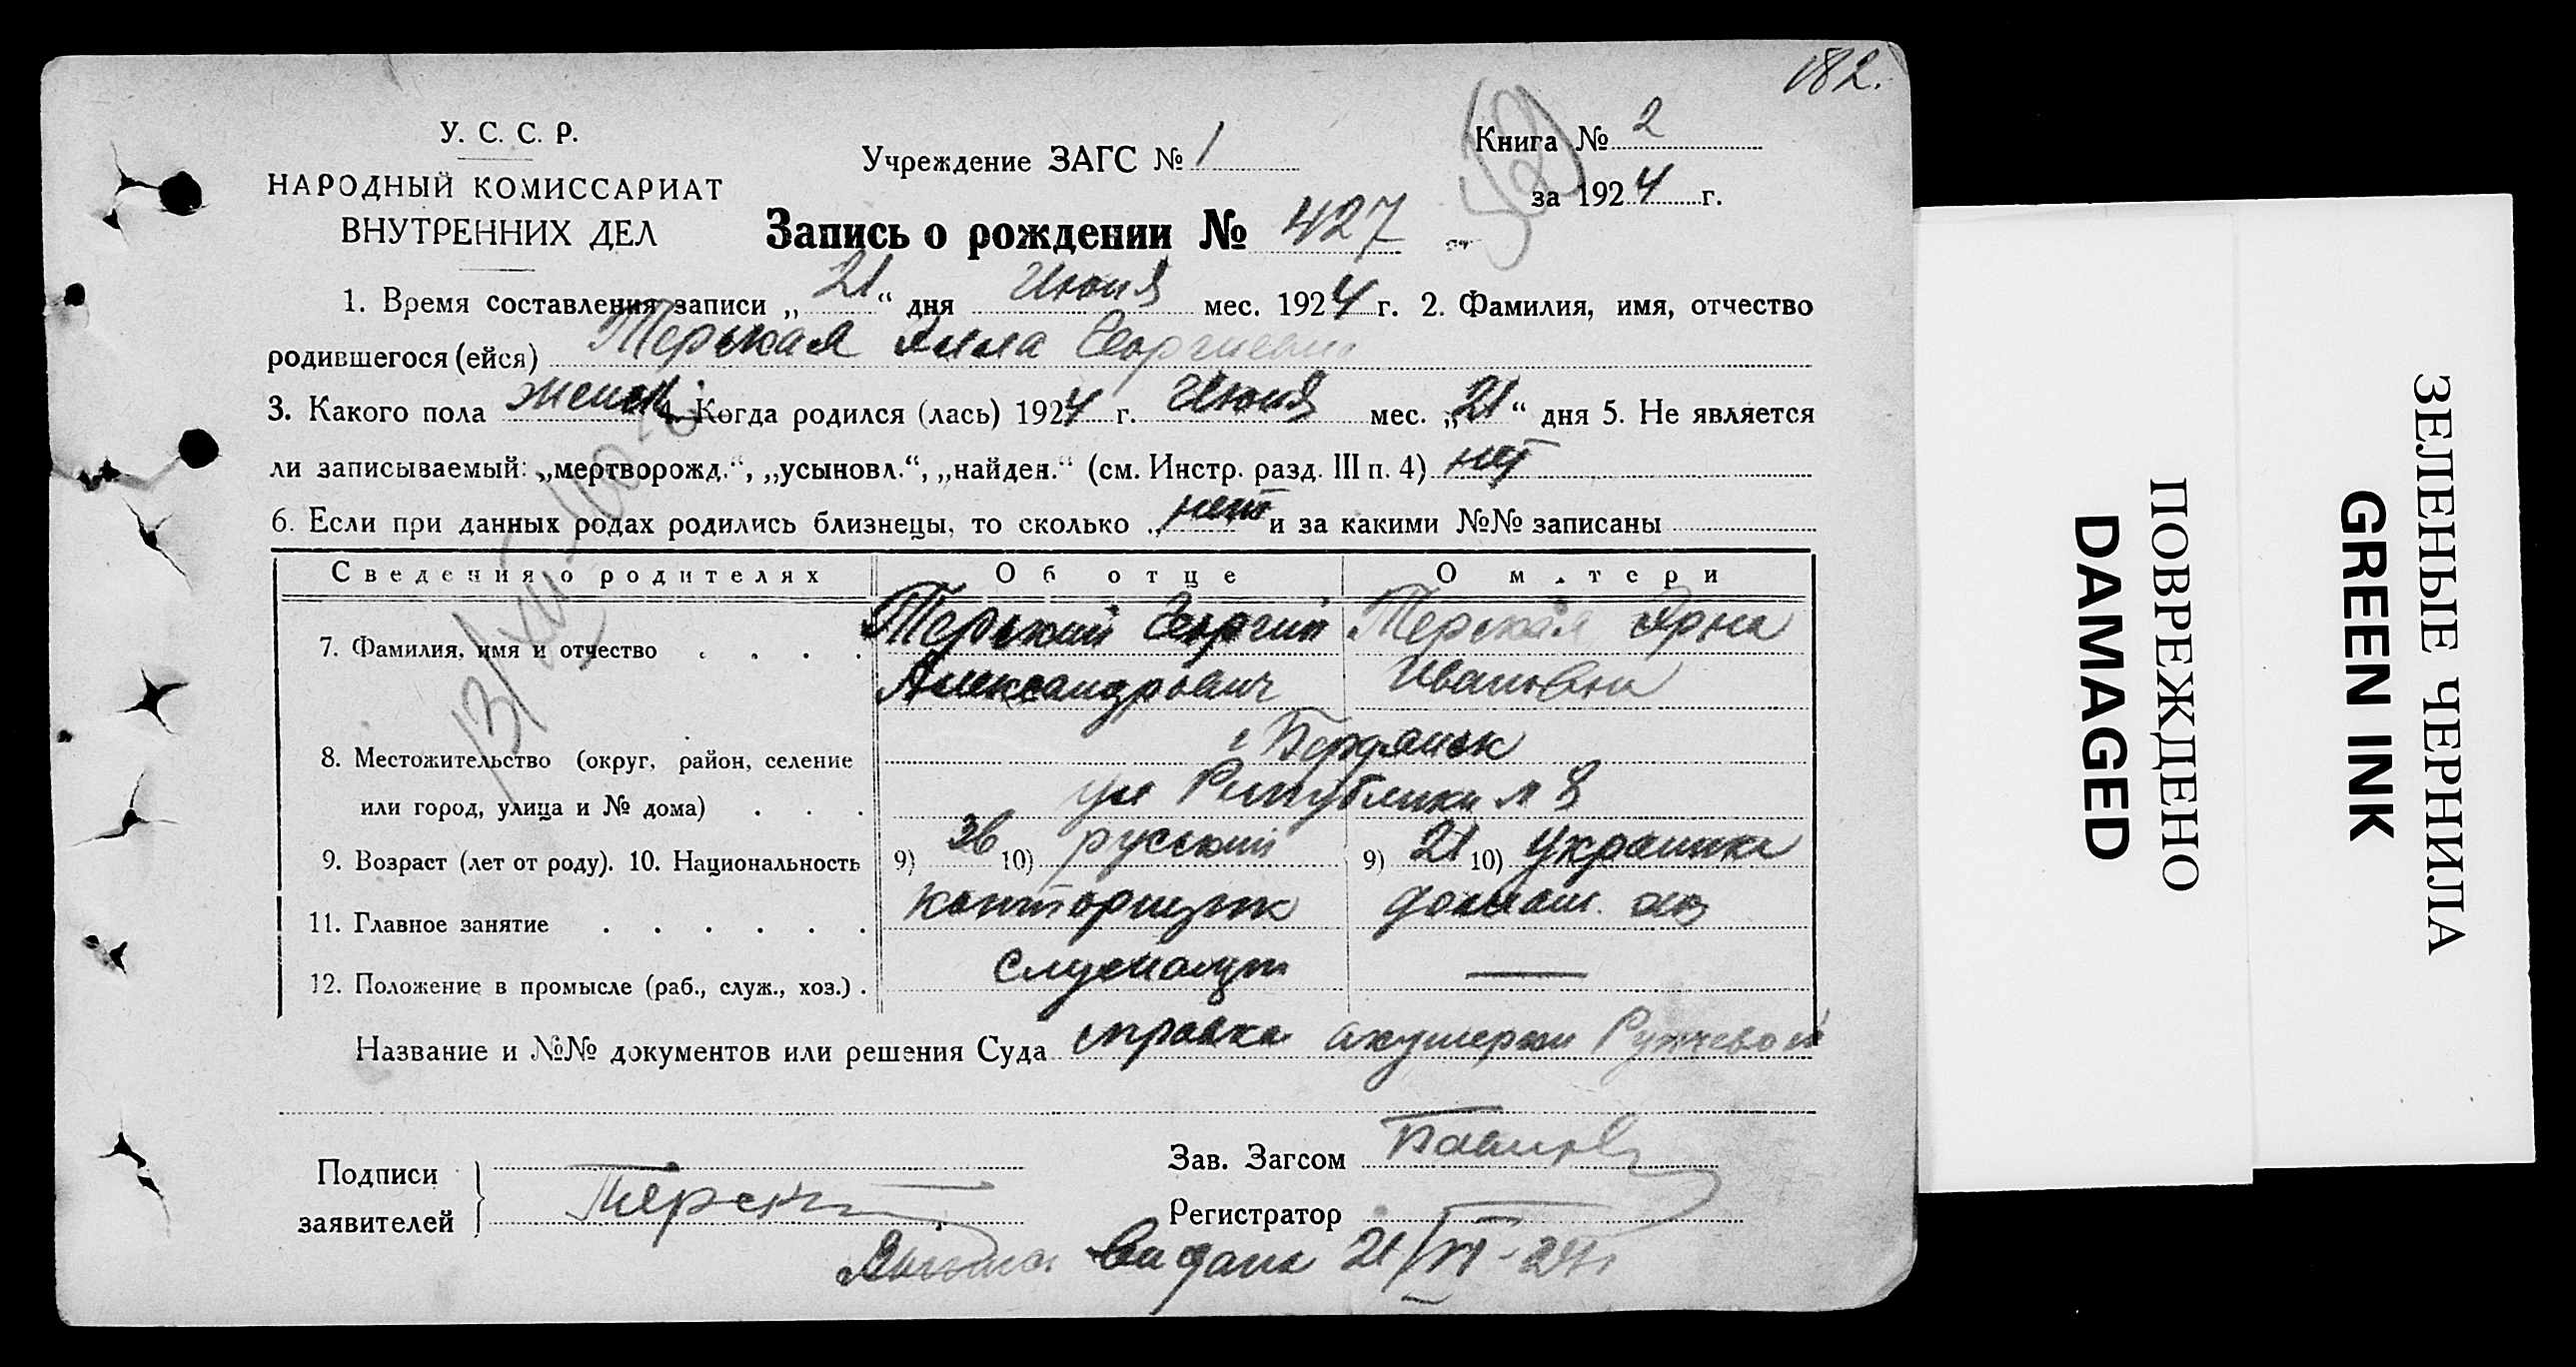 182.
У. С. С. Р.
НАРОДНЫЙ КОМИССАРИАТ
ВНУТРЕННИХ ДЕЛ
Учреждение ЗАГС № 1
Книга № 2
за 1924 г.
Запись о рождении № 427
1. Время составления записи „21“ дня Июня мес. 1924 г. 2. Фамилия, имя, отчество
родившегося (ейся) Терская Алла Георгиевна
3. Какого пола женск 4. Когда родился (лась) 1924 г. Июня мес. „21“ дня 5. Не является
ли записываемый: „мертворожд.“, „усыновл.“, „найден.“ (см. Инстр. разд. III п. 4) нет
6. Если при данных родах родились близнецы, то сколько „нет и за какими №№ записаны
Сведения о родителях Об отце О матери
7. Фамилия, имя и отчество . . . . Терский Георгий Александрович Терская Ивановна
8. Местожительство (округ, район, селение г Бердянск
или город, улица и № дома) . . . ул Республики № 8
9. Возраст (лет от роду). 10. Национальность 9) 36 10) русский 9) 21 10) Украинка
11. Главное занятие . . . . . . конторщик домаш. хоз
12. Положение в промысле (раб., служ., хоз.) . Служащий —
Название и №№ документов или решения Суда справка акушерки
Подписи
заявителей
Терский
Зав. Загсом
Регистратор
Выдана 21/VI-24г
ПОВРЕЖДЕНО
DAMAGED
ЗЕЛЕНЫЕ ЧЕРНИЛА
GREEN INK